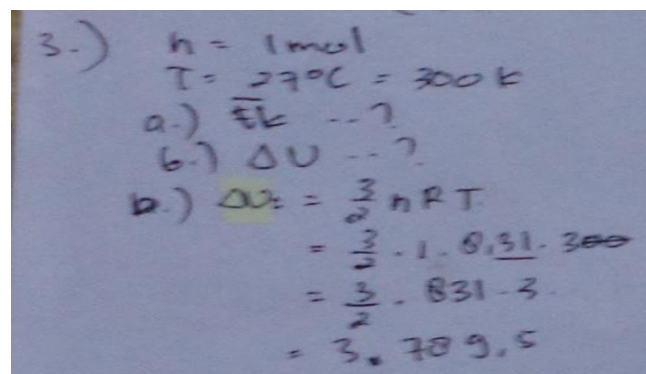 3.) n = 1 mol
T = 27°C = 300 K
a.) Ek ...?
b.) ΔU ...?
b.) ΔU = = 3/2 n R T
= 3/2 . 1 . 8,31 . 300
= 3/2 . 831 . 3
= 3.789,5